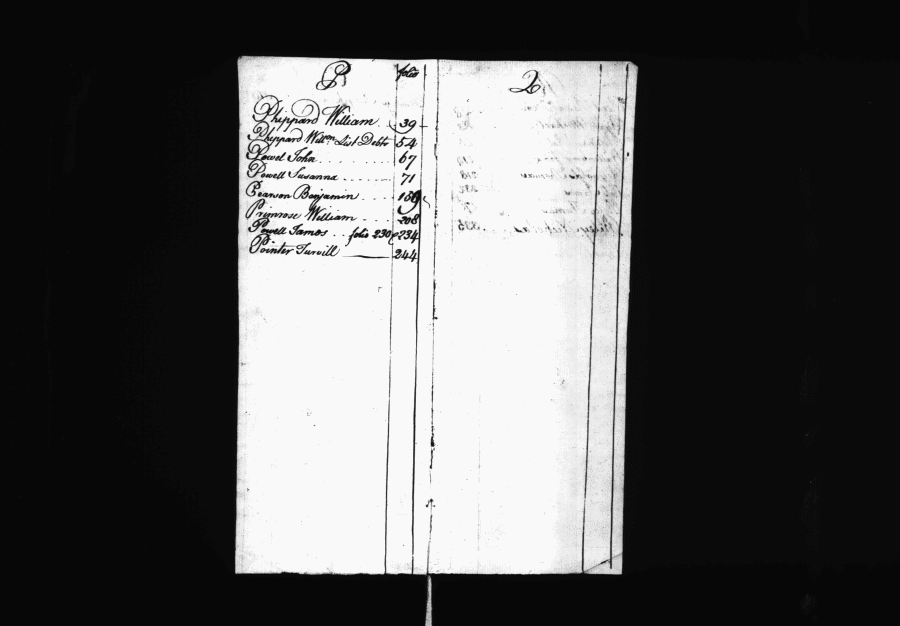 P folio
Phippard William 39
Phippard Willm List Debts 54
Powel John 67
Powell Susanna 71
Pearson Benjamin 159
Primrose William 208
Powell James folio 230 & 234
Pointer Turvill 244
Q